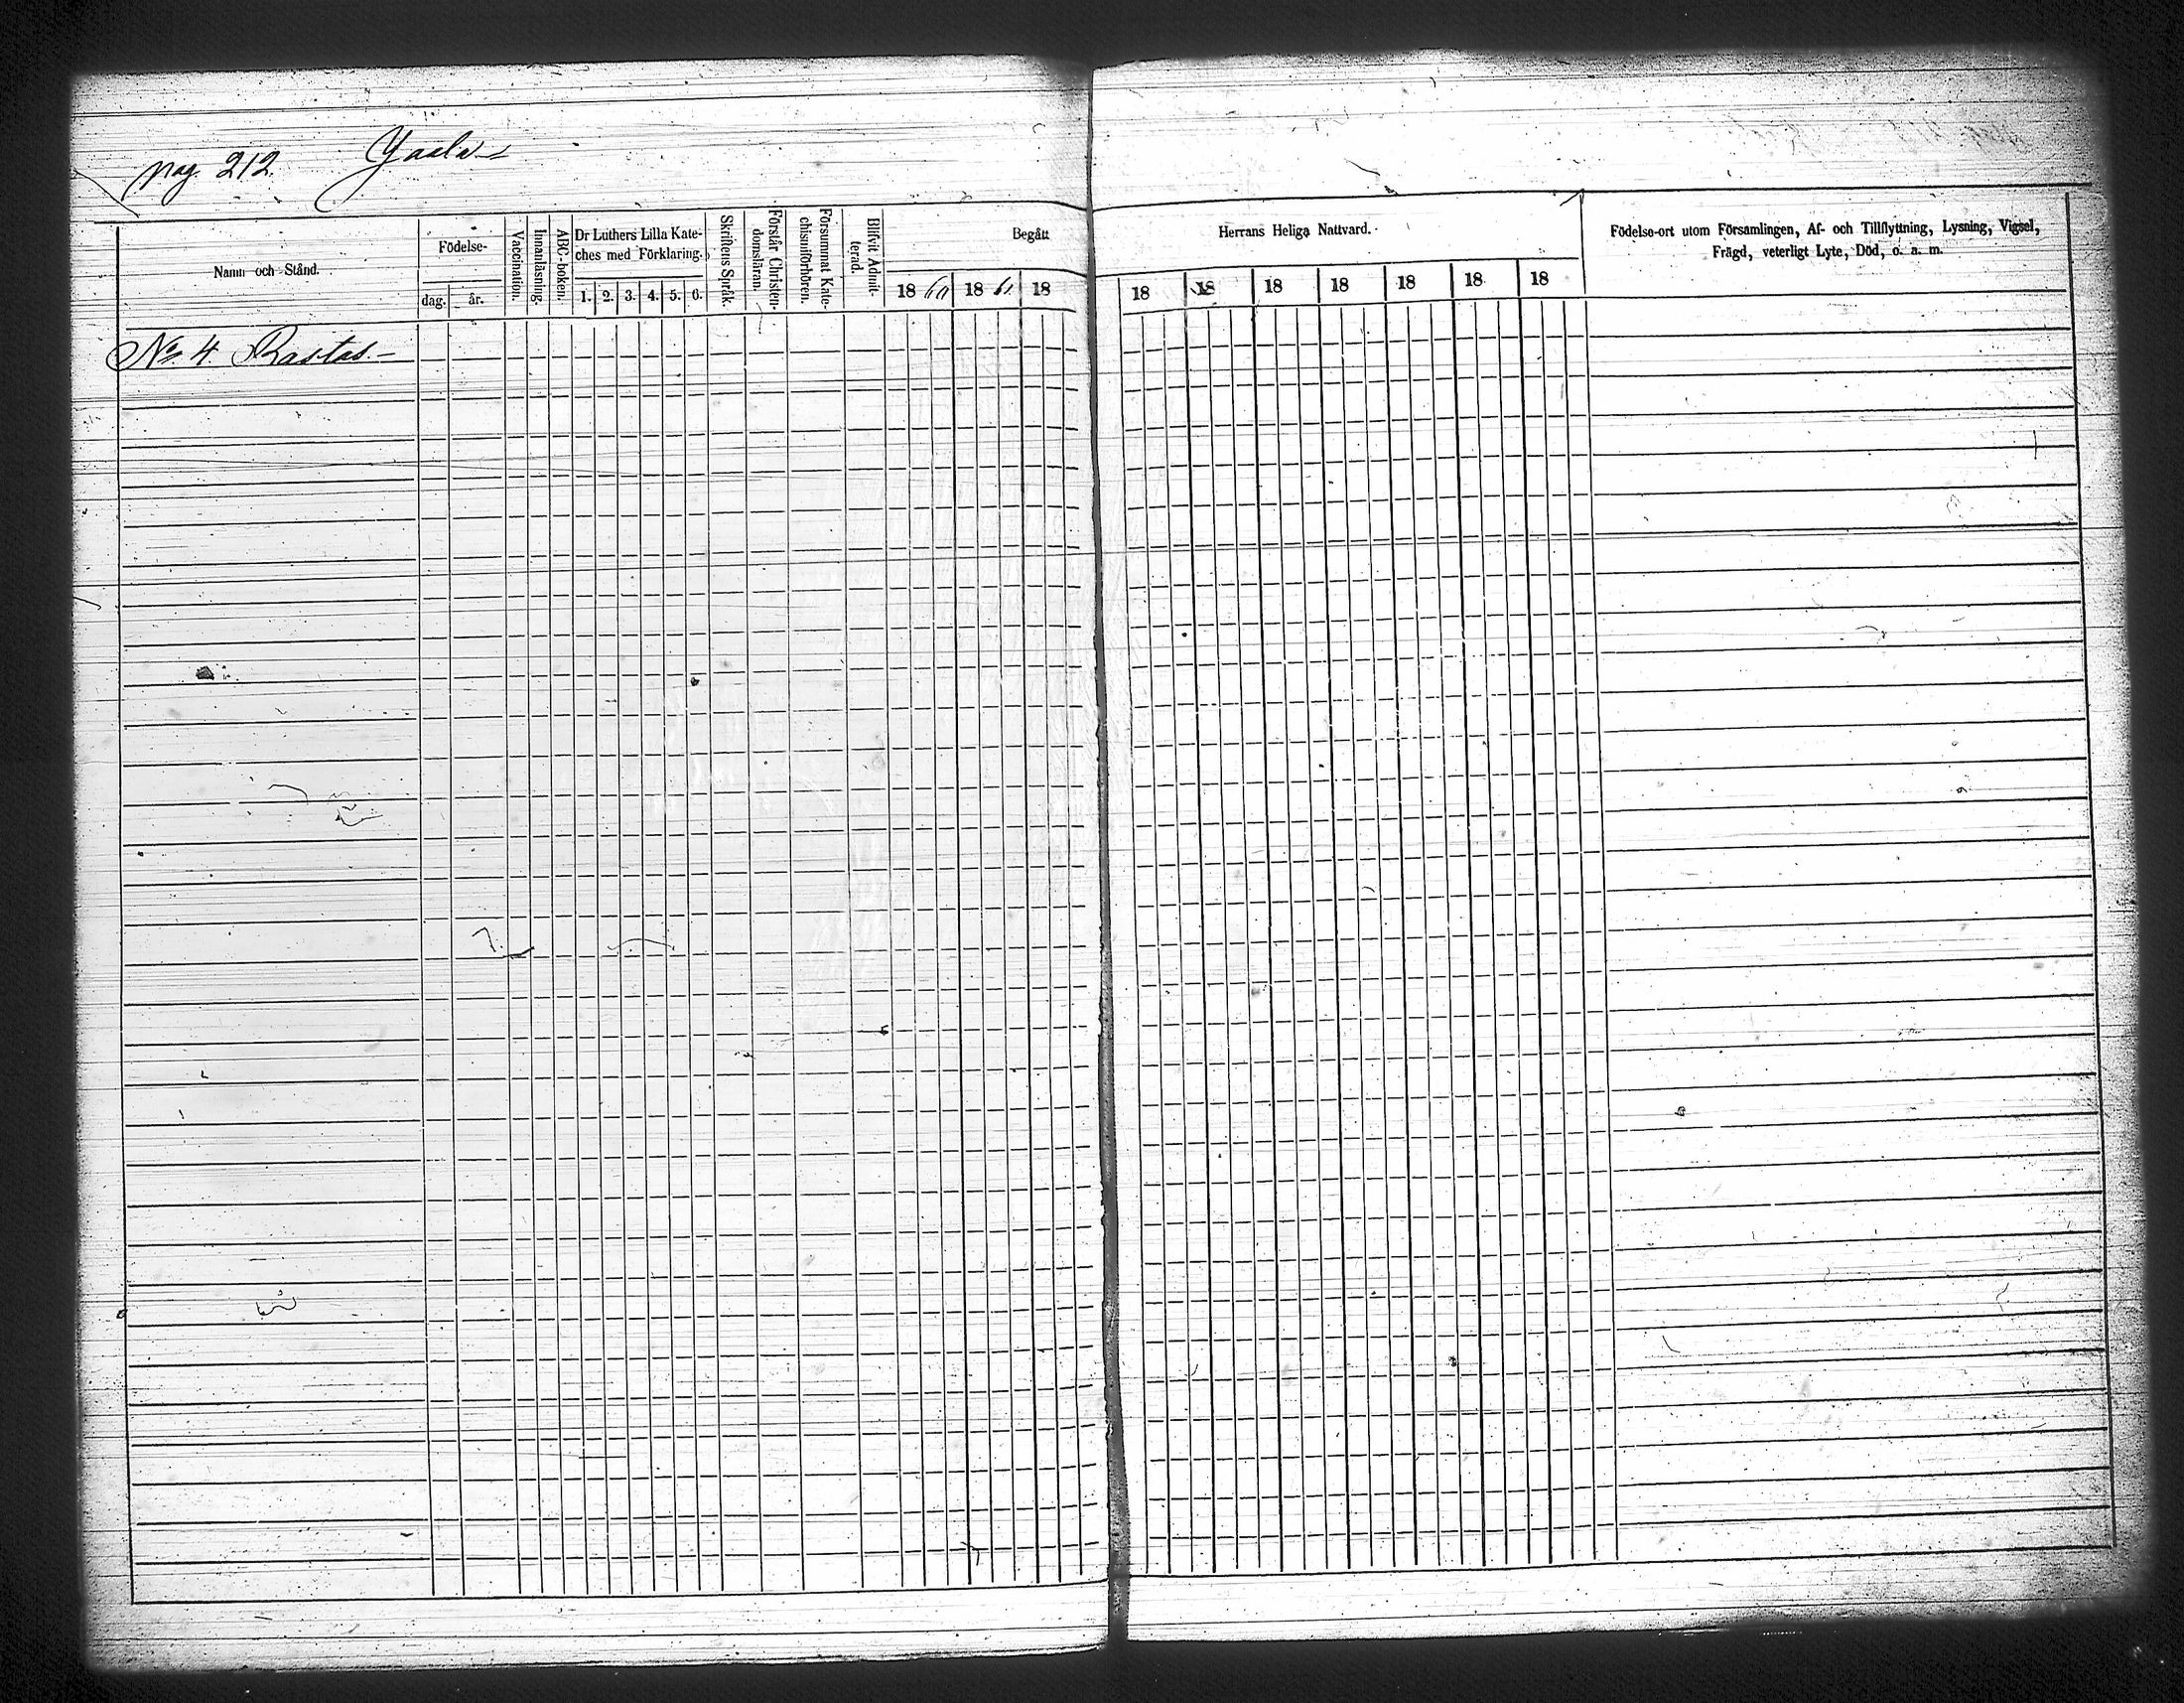 pag. 212. Yaala
Namn och Stånd.
Födelse-
dag.
år.
Vaccination.
Innanläsning.
ABC-boken.
Dr Luthers Lilla Kate-
ches med Förklaring.
1. 2. 3. 4. 5. 6.
Skriftens Språk.
Förstår Christen-
domsläran.
Försummat Kate-
chismiförhören.
Blifvit Admit-
terad.
Begått
Herrans Heliga Nattvard.
18 60 18 61 18 18 18 18 18 18 18 18
Födelse-ort utom Församlingen, Af- och Tillflyttning, Lysning, Vigsel,
Frägd, veterligt Lyte, Död, o. a. m.
No 4 Rastas